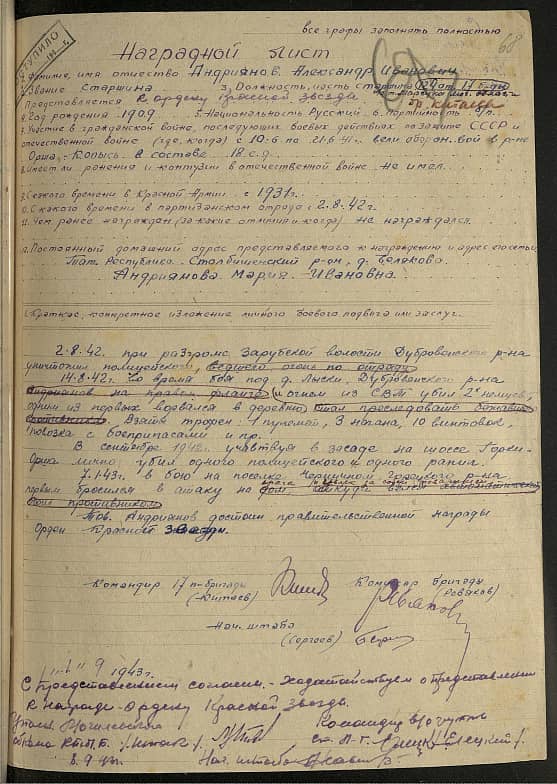 все графы заполнять полностью
68
Наградной лист
имя отчество Андриянов Александр Иванович
Звание Старшина 3. Должность, часть
Представляется к ордену Красной звезды
4. Год рождения 1909 5. Национальность Русский 6. Партийность
7. Участие в гражданской войне, последующих боевых действиях по защите СССР и
отечественной войне (где, когда) с 10.6 по 21.6.41г. вели оборон. бой в р-не
Орша, Копысь в составе 18 с.д.
8. Имест ли ранения и контузии в отечественной войне не имел.
9. С какого времени в Красной Армии с 1931г.
10. С какого времени в партизанском отряде с 2.8.42г.
11. Чем ранее награжден (за какие отличия и когда) не награждался.
12. Постоянный домашний адрес представляемого к награждению и адрес его семьи
Тат. Республика Столбищенский р-он, д. Белякова
Андриянова Мария Ивановна
Краткое, конкретное изложение личного боевого подвига или заслуг.
2.8.42. при разгроме Зарубской волости Дубровенского р-на
уничтожил полицейского, ведшего огонь по отряду
14.8.42г. во время боя под д. Лыски, Дубровенского р-на
Андрианов на правом фланге и огнем из СВТ убил 2х немцев,
одним из первых ворвался в деревню стал преследовать бежавших
противника. Взяты трофеи: 1 пулемет, 3 нагана, 10 винтовок,
повозка с боеприпасами и пр.
В сентябре 1942г. участвуя в засаде на шоссе Горки-
Орша лично убил одного полицейского и одного ранил.
7.1.43г. в бою на поселке Чермичном Горецкого р-на
первым бросился в атаку на дом, откуда вел
огонь противник.
Тов. Андриянов достоин правительственной награды
Орден Красной Звезды.
Командир 17 п-бригады
(Китаев)
Комиссар бригады
(Реваков)
Нач. штаба
(Сергеев)
9 1943г.
С представлением согласны. - Ходатайствуем о представлении
к награде - ордену Красной звезды.
8.9.43г. Нач. штаба